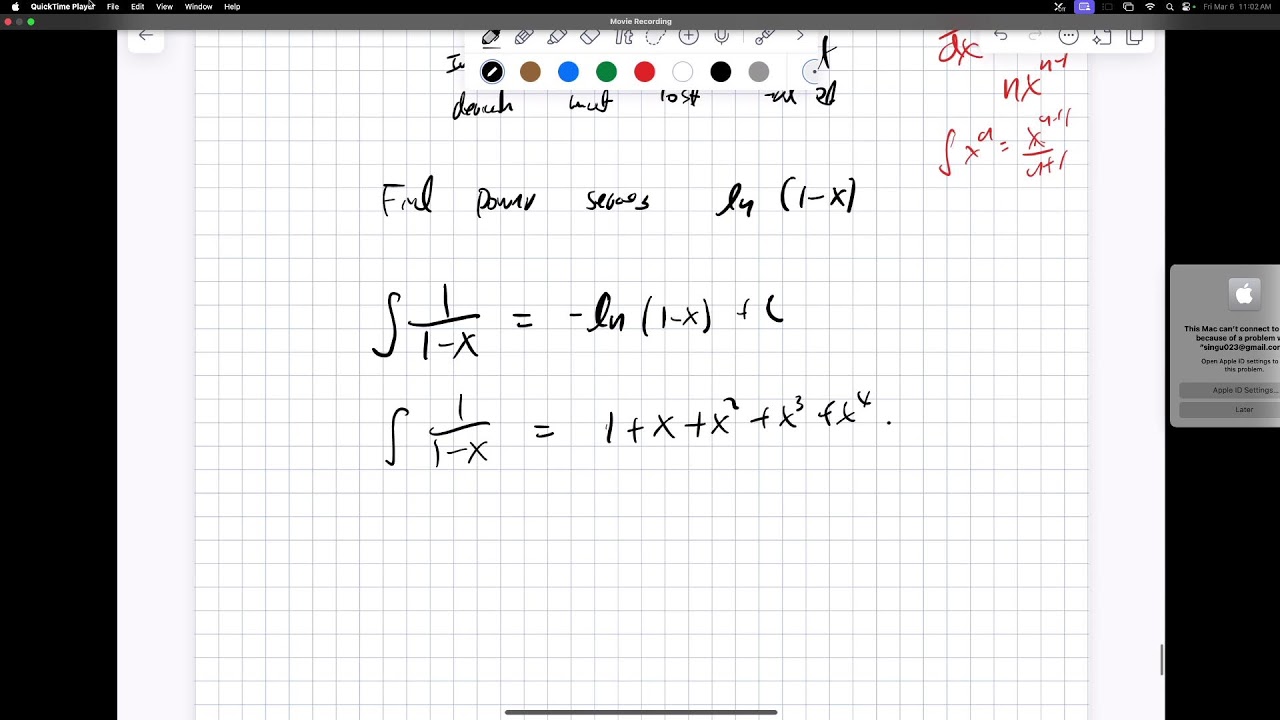 QuickTime Player File Edit View Window Help Fri Mar 6 11:02 AM
Movie Recording
dx
nx^{n-1}
∫ x^n = x^{n+1}/n+1
Find power series ln (1-x)
∫ 1/1-x = -ln (1-x) + C
∫ 1/1-x = 1 + x + x^2 + x^3 + x^4 .
This Mac can't connect to
because of a problem
"singu023@gmail.com
Open Apple ID settings to
this problem.
Apple ID Settings...
Later